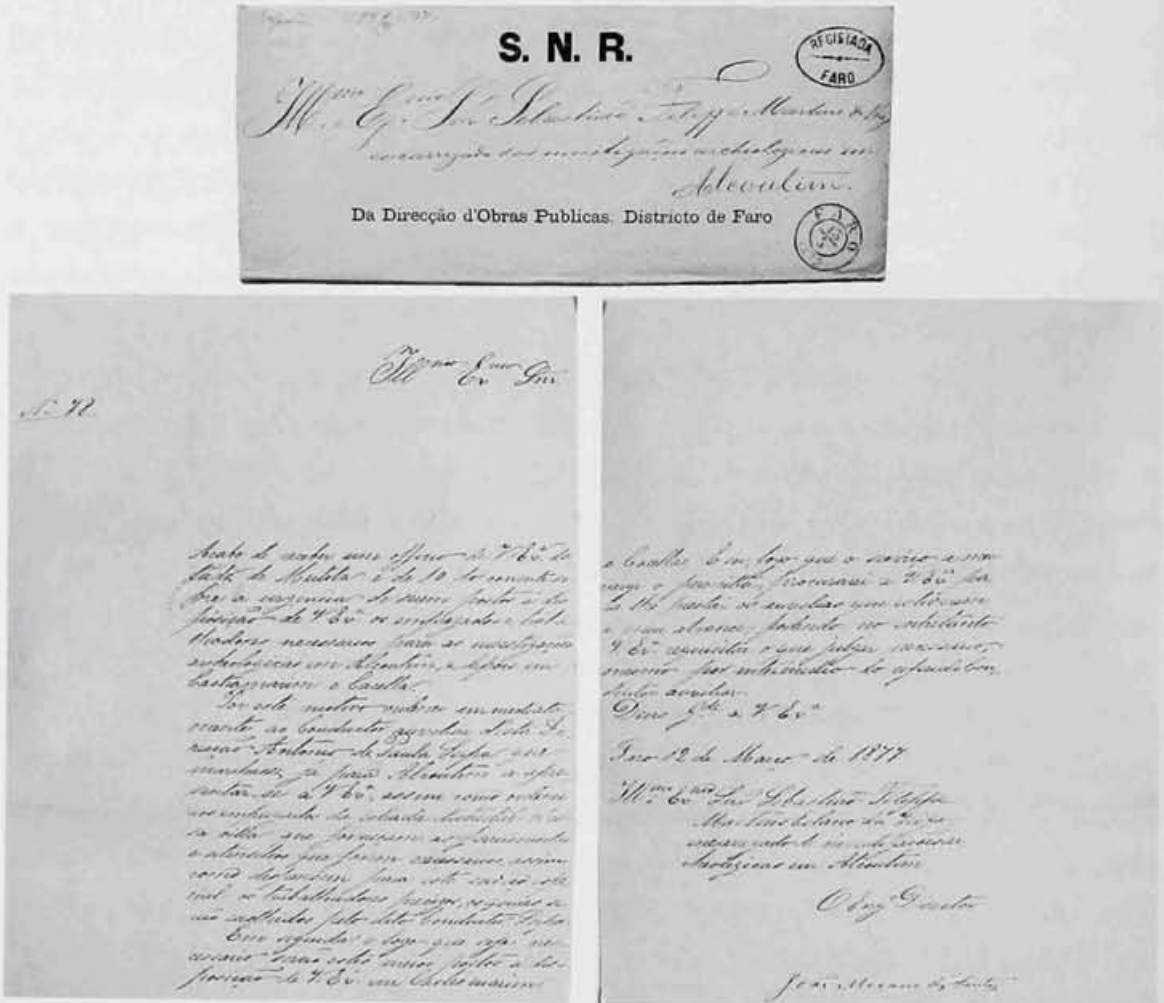 S. N. R.
REGISTADA
FARO
Sebastião Filippe Martins
encarregado das investigações archeologicas em
Alcoutim.
Da Direcção d'Obras Publicas. Districto de Faro
FARO
Illmo Exmo Snr
Nº 72
Acabo de receber um officio de V Exª da
de 10 do corrente
a urgencia de serem postos á dis
posição de V Exª os empregados e traba
lhadores necessarios para as investigações
archeologicas em Alcoutim, e depois em
Castromarim e Cacella.
Por este motivo ordeno immediata
mente ao Conductor auxiliar d'esta Di
recção Antonio de Paula Serpa que
marche já para Alcoutim a apre
sentar-se a V Exª, assim como ordeno
ao da estrada
villa que forneçam as ferramentas
e utensilios que forem necessarios assim
como para este serviço
os trabalhadores precisos, os quaes se
rão escolhidos pelo dito Conductor Serpa
Em seguida e logo que seja ne
cessario serão estes meios postos á dis
posição de V Exª em Castromarim
e Cacella. E eu, logo que o serviço
o permitta, procurarei a V Exª pa
ra lhe prestar os auxilios que estiverem
a meu alcance, podendo no entretanto
V Exª requisitar o que julgar necessario,
mesmo por intermedio do referido Con
ductor auxiliar.
Deus Gde a V Exª
Faro 12 de Março de 1877
Illmo Exmo Snr Sebastião Filippe
Martins Estacio da Veiga
em Alcoutim
O Engº Director
João